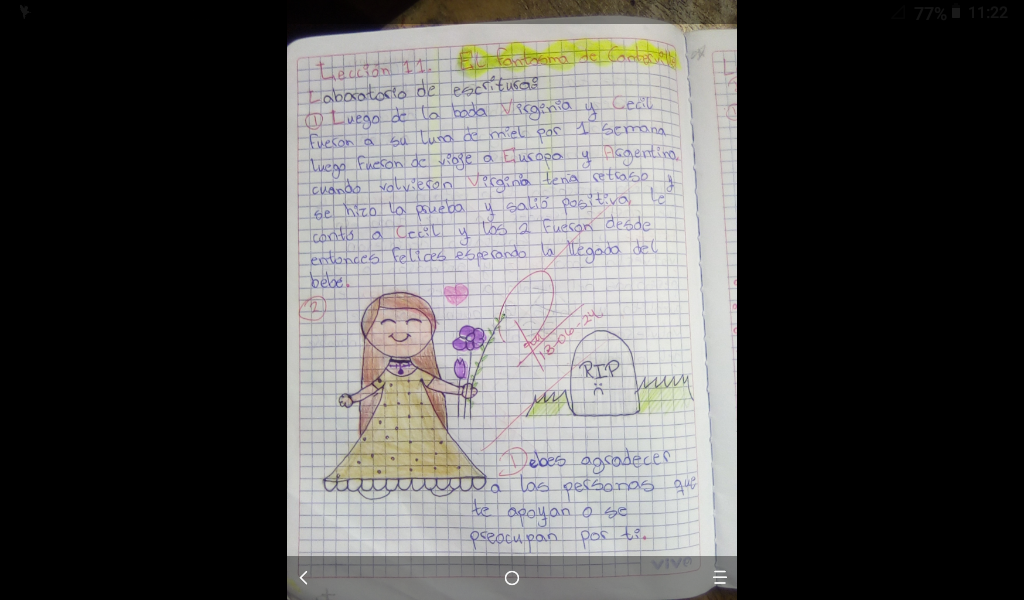 77% 11:22
Lección 11. El fantasma de Canterville
Laboratorio de escritura:
① Luego de la boda Virginia y Cecil
fueron a su luna de miel por 1 semana
luego fueron de viaje a Europa y Argentina,
cuando volvieron Virginia tenia retraso y
se hizo la prueba y salió positiva, le
conto a Cecil y los 2 fueron desde
entonces felices esperando la llegada del
bebe.
②
13-06-24
RIP
Debes agradecer
a las personas que
te apoyan o se
preocupan por ti.
viva